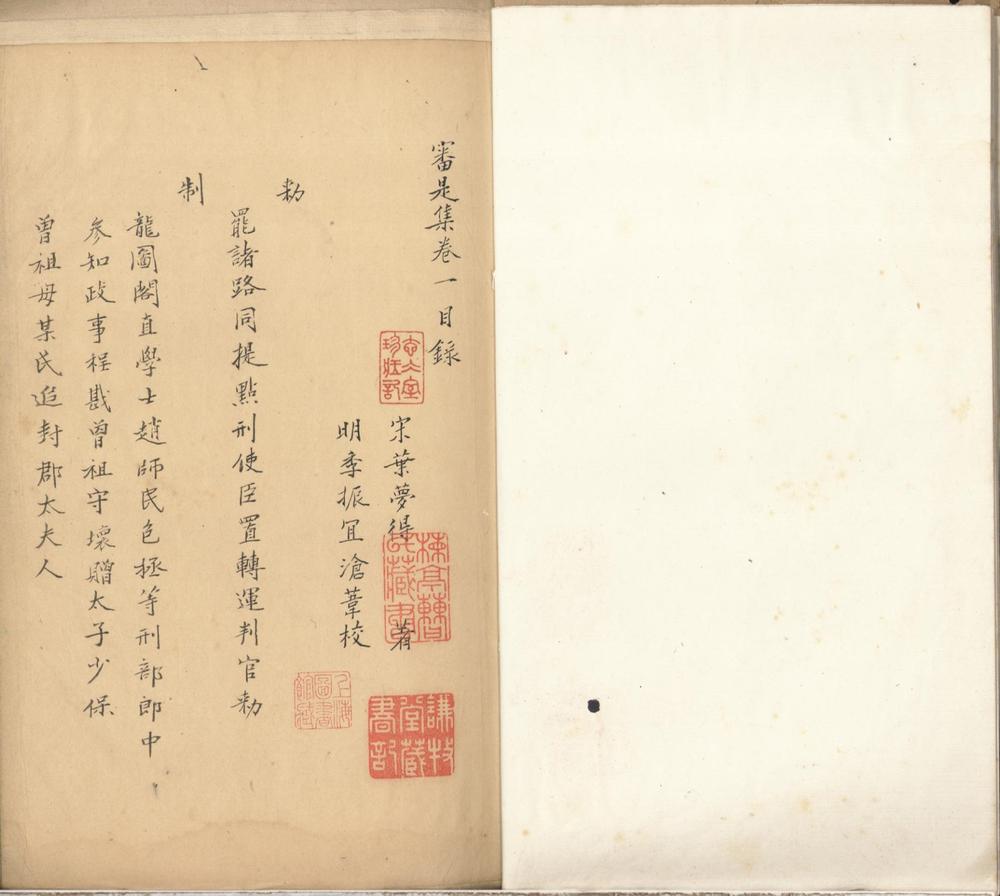 審是集卷一目錄
宋葉夢得著
明季振宜滄葦校
勑
罷諸路同提點刑使臣置轉運判官勑
制
龍圖閣直學士趙師民包拯等刑部郎中
參知政事程戡曾祖守瓌贈太子少保
曾祖母某氏追封郡太夫人
謙牧堂藏書記
上海圖書館藏